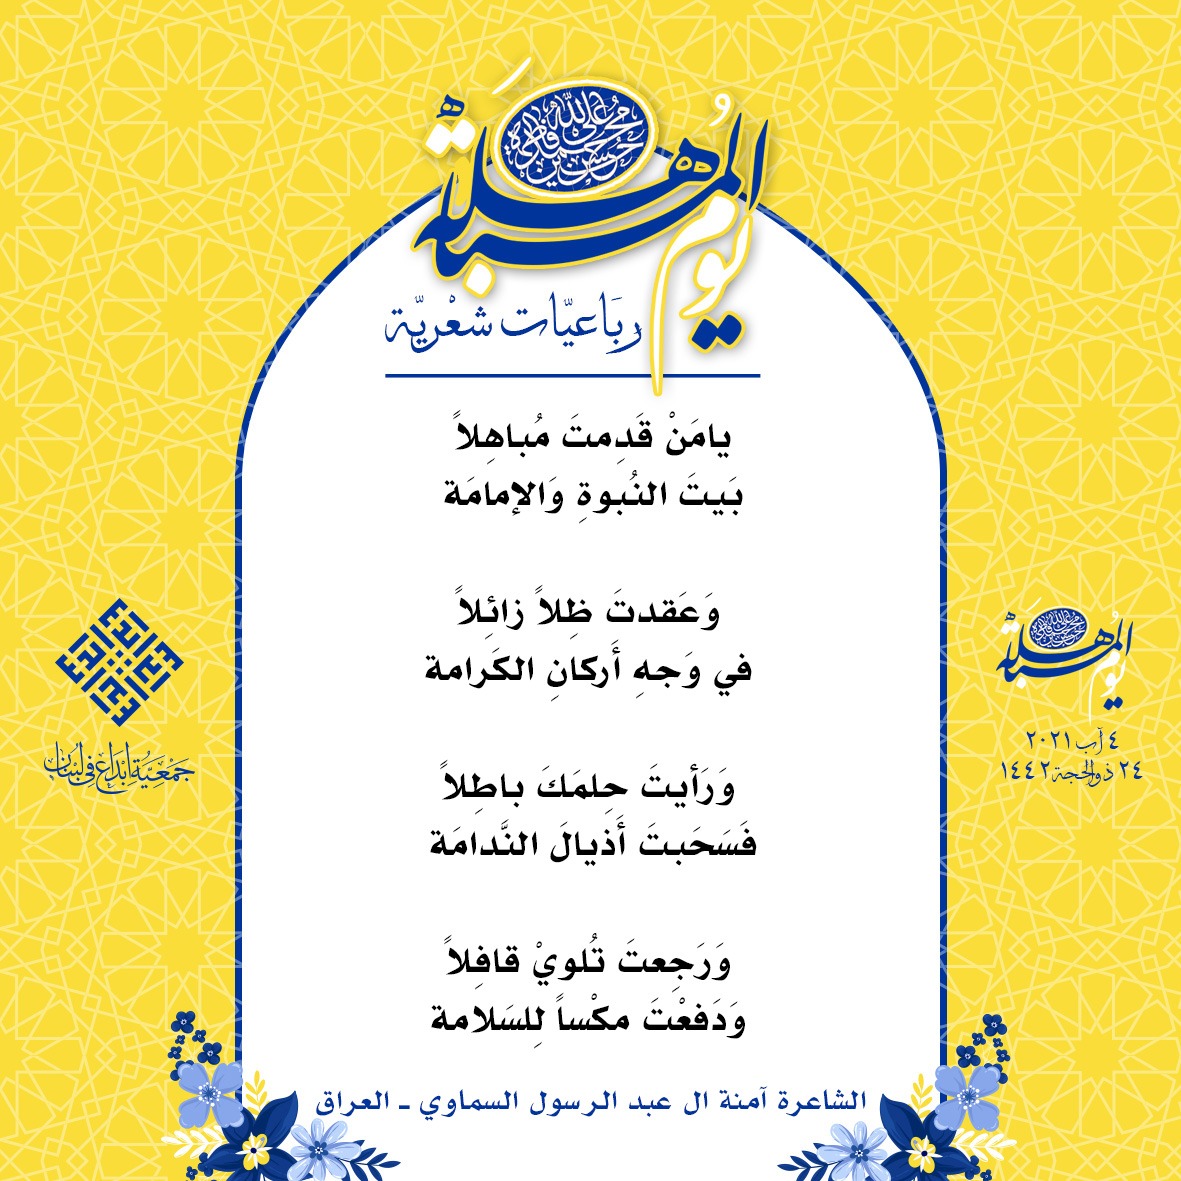 يوم المباهلة
محمد علي فاطمة حسن حسين
رُبَاعيّات شعْريّة
يامَنْ قَدِمتَ مُباهِلاً
بَيتَ النُبوةِ وَالإمامَة
وَعَقدتَ ظِلاً زائِلاً
في وَجهِ أَركانِ الكَرامة
وَرَأيتَ حِلمَكَ باطِلاً
فَسَحَبتَ أَذيالَ النَّدامَة
وَرَجِعتَ تُلويْ قافِلاً
وَدَفعْتَ مكْساً لِلسَلامة
الشاعرة آمنة ال عبد الرسول السماوي ـ العراق
جمعيّة إبداع في لبنان
يوم المباهلة
٤ آب ٢٠٢١
٢٤ ذو الحجة ١٤٤٢